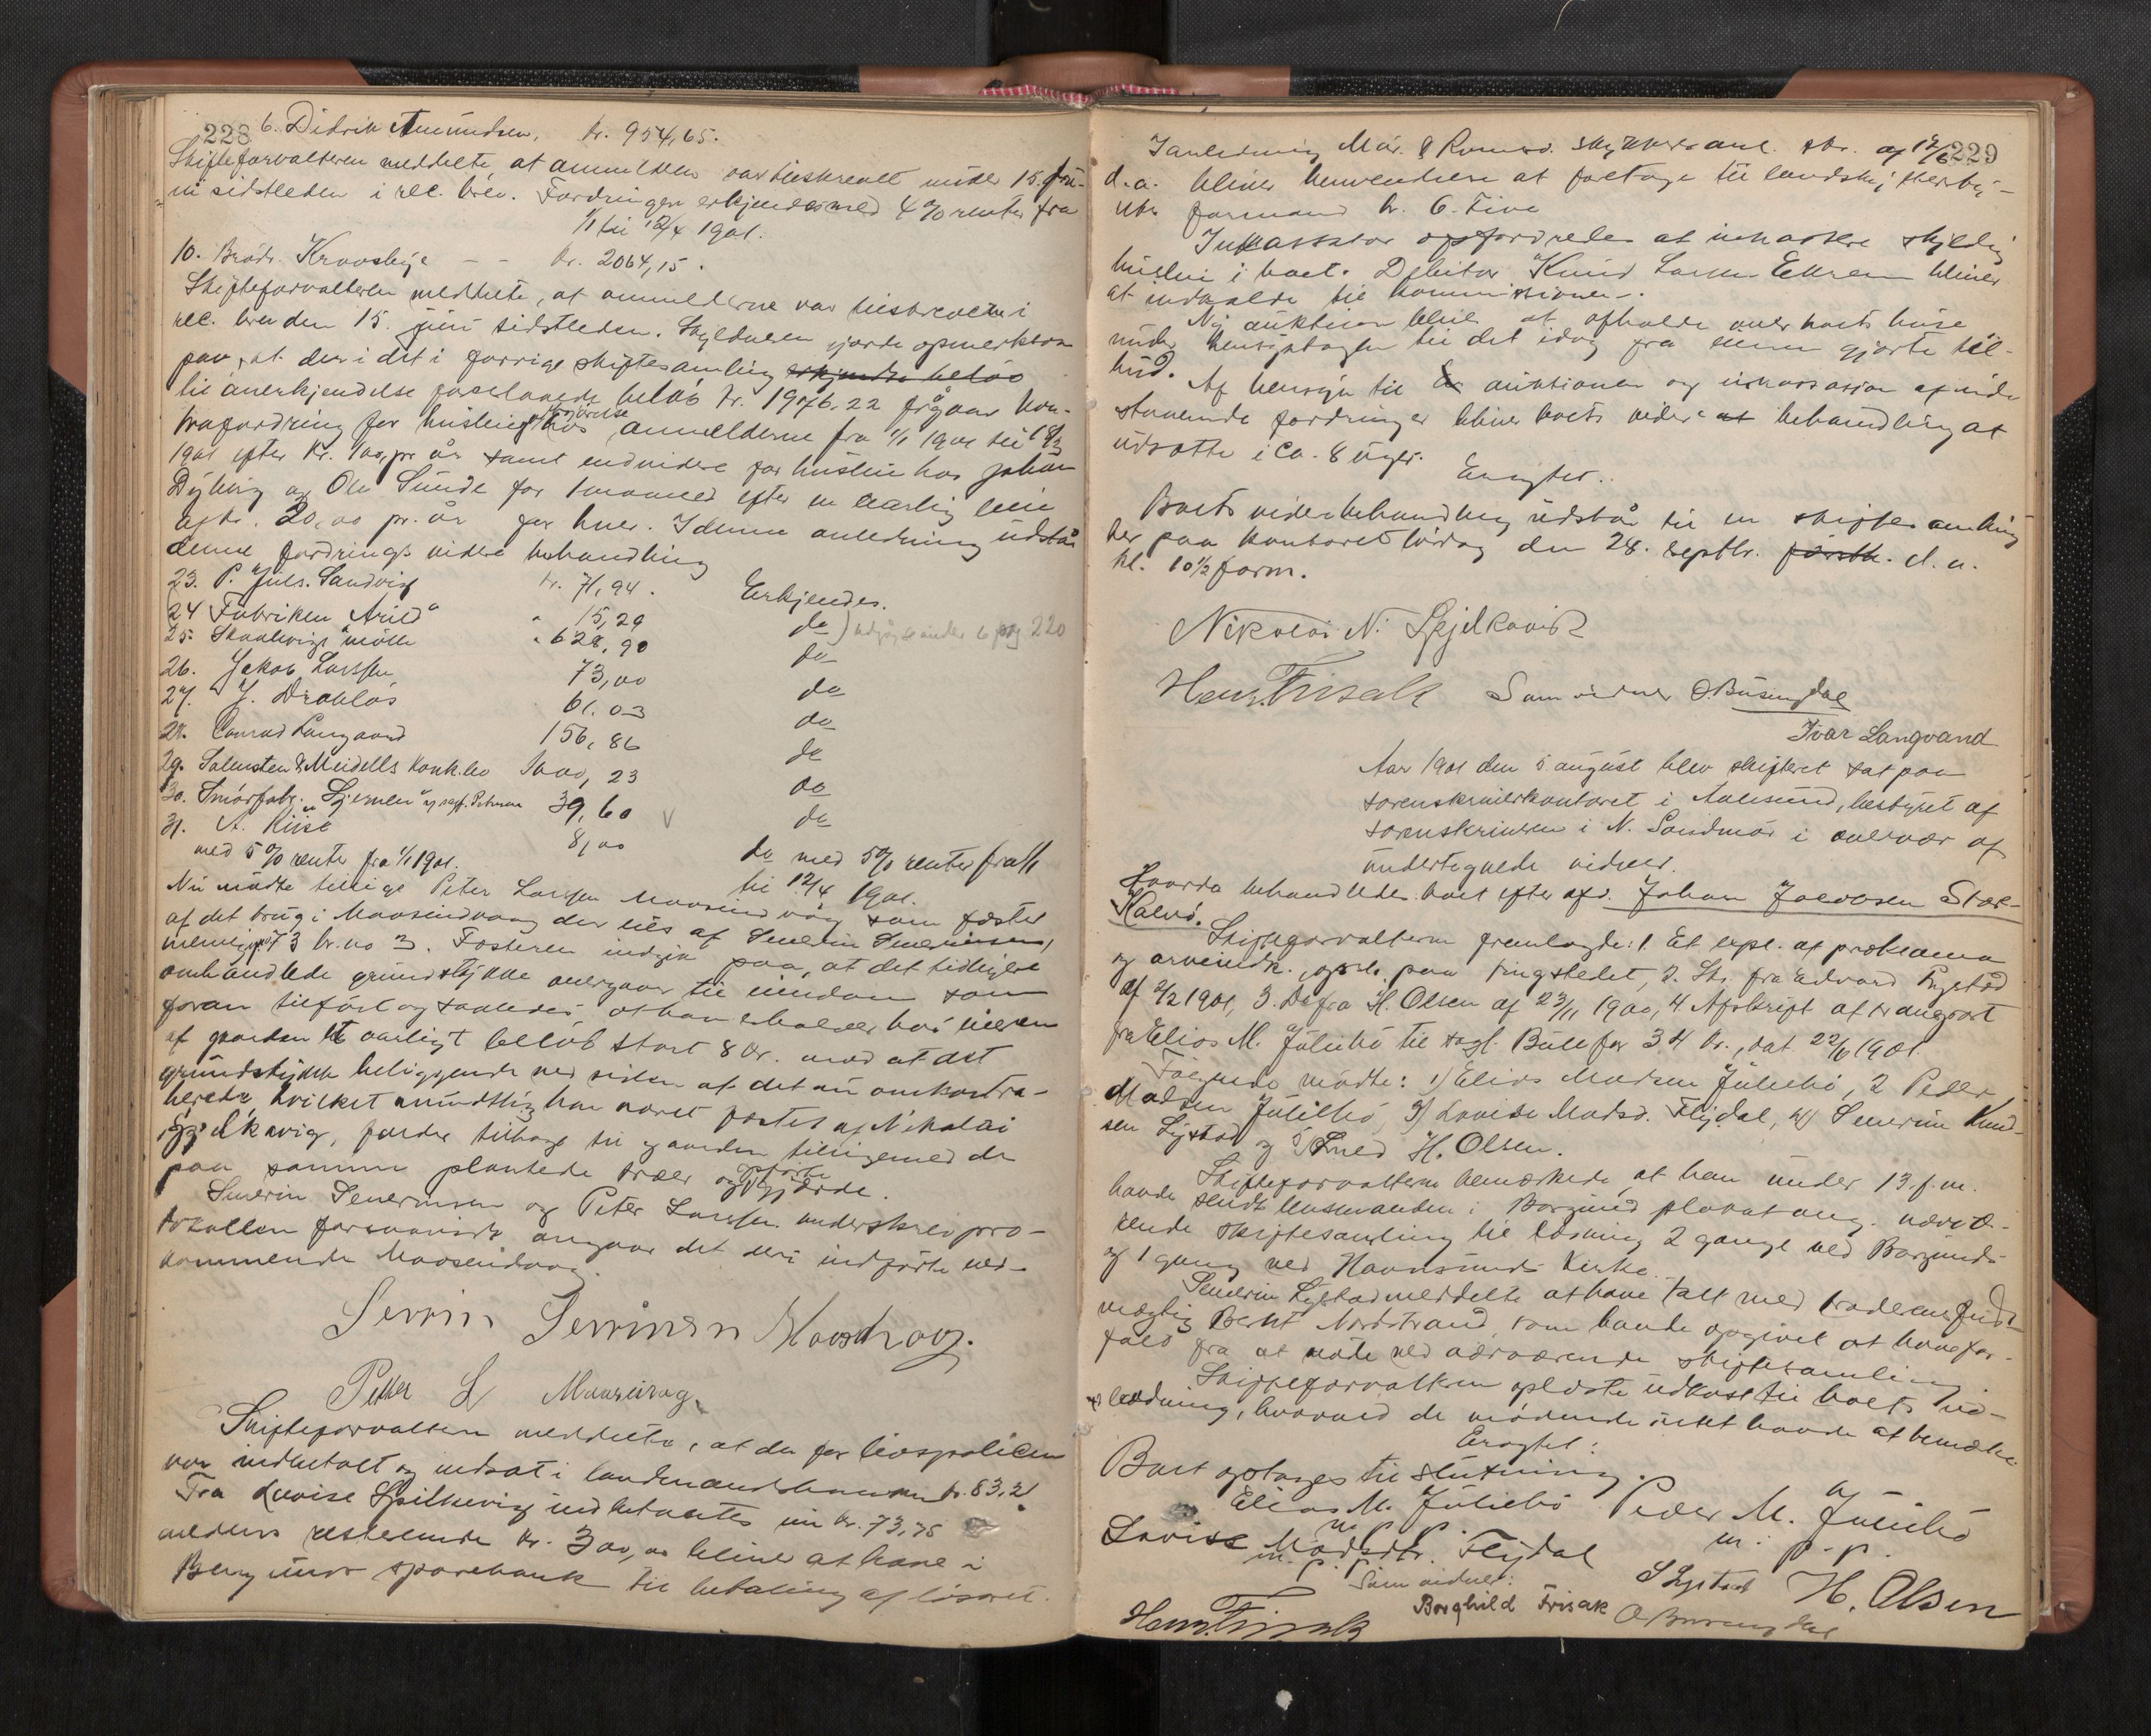 228 6. Didrik Amundsen. kr. 954,65.
Skifteforvalteren meddelte, at anmelderen var tilskrevet under 15. ju-
ni sidstleden i rec. brev. Fordringen erkjendes med 4 % renter fra
1/1 til 12/4 1901.
10. Brødr. Kravsbye - - kr. 2064,15.
Skifteforvalteren meddelte, at anmelderne var tilskrevet i
rec. brev den 15. juni sidstleden. Skyldneren gjorde opmerksom
paa, at der i det i forrige skiftesamling erkjendte beløb
til anerkjendelse foreslaaede beløb kr. 1976.22 frågaar kon-
trafordring for husleie hos anmelderne fra 1/1 1901 til
1901 efter kr. 100, pr. år samt endvidere for husleie hos Johan
Dyhrig og Ole Sunde for 1 maaned efter en aarlig leie
af kr. 20,00 pr. år for hver. I denne anledning udstår
denne fordrings videre behandling
23. P. Juls. Sandvig kr. 71,94. Erkjendes.
24 Fabriken Arild" " 15,29 do ) udgåt se under 6 pag 220
25. Skodvigs mølle " 628,90 do
26. Jakob Larssen 73,00 do
27. J. Drabløs 61.03 do
28. Conrad Langaard 156,86 do
29. Salmsten & Meidells konk.bo 23 do
30. Smørfabr. "Stjernen" 39,60 do
31. A. Riise 8,00
med 5 % rente fra 1/1 1901. do med 5% renter fra 1/1
til 12/4 1901.
Nu mødte tillige Peter Larssen Mauseidvåg som fæster
af det brug i Mauseidvaag der eies af Severin Severinsen,
73 br.no 3. Fæsteren indgik paa, at det tidligere
omhandlede grundstykke overgaar til eiendom som
foran tilført og saaledes at han erholder hos eieren
af gaarden et aarligt beløb stort 8 kr. mod at det
grundstykke beliggende ved siden af det nu omkontra-
herede, hvilket mundtlig har været fæstet af Nikolai
Spjelkavig, falder tilbage til gaarden tilligemed de
paa samme plantede træer og gjærde.
Severin Severinsen og Peter Larssen underskrev pro-
tokollen forsaavidt angaar det deri indførte ved-
kommende Mauseidvaag.
Serrin Serrinsen Mavsevog.
Petter L Mauseivag.
Skifteforvalteren meddelte, at der for livspolicen
var indbetalt og indsat i landmandsbanken kr. 83,21
Fra Lovise Spilkevig indbetaltes nu kr. 73,75
medens resterende kr. 300,00 bliver at hæve i
Borgunds sparebank til betaling af løsøret.
229
I anledning Mør. & Romsd. skr. af 12/6
d.a. bliver henvendelse at foretage til
formand hr. O. Five
Inkassator opfordredes at inkassere skyldig
husleie i boet. Debitor Knud Larsen Ekrem bliver
at indkalde til kommissionen.
Ny auktion bliver at afholde over boets huse
under hensyntagen til det idag fra eieren gjorte til-
bud.
Af hensyn til auktionen og inkassasjon af ude-
staaende fordringer bliver boets videre at behandling at
udsætte i ca. 8 uger.
Eragtet.
Boets videre behandling udstår til en skiftesamling
her paa kontoret lørdag den 28. septbr. førstk. d.a.
kl. 10 1/2 form.
Nikolai N. Spjelkavik
Henr. Frisak Som vidner O. Busengdal
Ivar Langvand
Aar 1901 den 5. august blev skifteret sat paa
sorenskriverkontoret i Aalesund, bestyret af
sorenskriveren i N. Søndmør i overvær af
undertegnede vidner.
Hvorda behandledes boet efter afd. Johan Jacobsen Stor-
Kalvø.
Skifteforvalteren fremlagde: 1. Et expl. af proklama
og arveindk., opsl. paa tingstedet, 2. Skr. fra Edvard Rystad
af 2/2 1901, 3. Do fra H. Olsen af 23/11 1900, 4 Afskrift af transport
fra Elias M. Julebø til sagf. Bull for 34 kr., dat. 22/6 1901.
Følgende mødte: 1) Elias Madsen Julebø, 2 Peder
Madsen Julebø, 3) Lovise Madsd. Flydal, 4) Severin Knud-
sen Lystad og 5) H. Olsen.
Skifteforvalteren bemærkede, at han under 13. f.m.
havde sendt lensmanden i Borgund plakat ang. nærvæ-
rende skiftesamling til læsning 2 gange ved Borgunds
og 1 gang ved Havnsunds kirke.
Severin Lystad meddelte at have talt med broderens fuld-
mægtig Bernt Nordstrand, som havde opgivet at have for-
fald fra at møde ved nærværende skiftesamling.
Skifteforvalteren oplæste udkast til boets ud-
lodning, hvorved de mødende intet havde at bemærke.
Eragtet:
Boet optages til slutning.
Elias M. Julebø Peder M. Julebø
m. p. p. m. p. p.
Lovise Madsdtr. Flydal
m. p. p. S Lystad H. Olsen
Som vidner:
Henr. Frisak Borghild Frisak O Busengdal